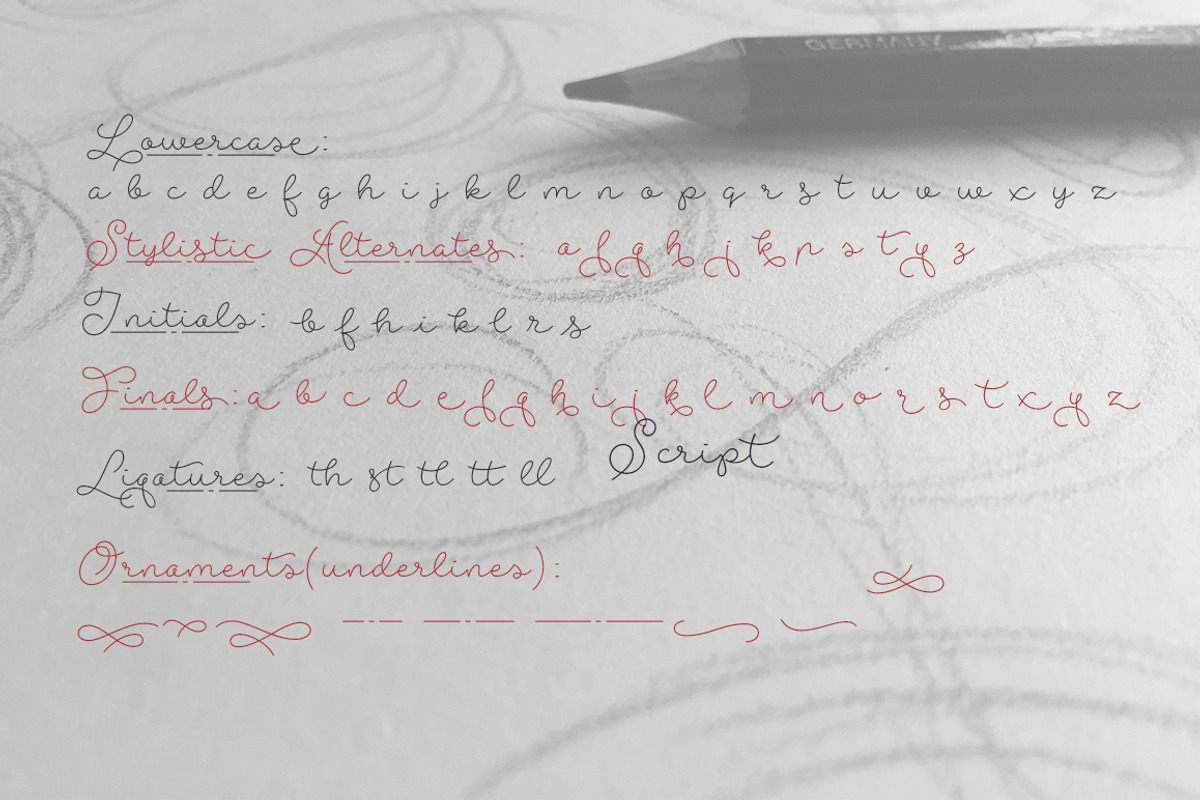 GERMANY
Lowercase:
a b c d e f g h i j k l m n o p q r s t u v w x y z
Stylistic Alternates: a f g h j k n s t y z
Initials: b f h i k l r s
Finals: a b c d e f g h i j k l m n o r s t x y z
Script
Ligatures: th st tl tt ll
Ornaments(underlines):